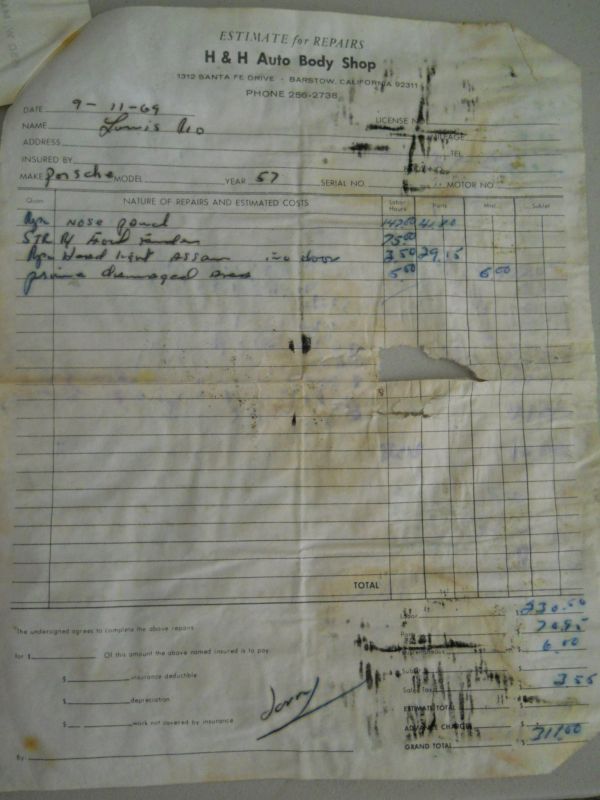 ESTIMATE for REPAIRS
H & H Auto Body Shop
1312 SANTA FE DRIVE - BARSTOW, CALIFORNIA 92311
PHONE 256-2738
DATE 9-11-69
NAME Louis Rio
LICENSE NO.
ADDRESS
TEL.
INSURED BY
MAKE Porsche MODEL YEAR 57 SERIAL NO. MOTOR NO.
Quan. NATURE OF REPAIRS AND ESTIMATED COSTS Labor Hours Parts Misc. Sublet
Rpr nose panel 147.00 41.80
STR Rf Front fender 75.00
head light Assam inc door 3.50 29.15
prime dammaged area 5.00 6.00
TOTAL
The undersigned agrees to complete the above repairs
Labor $ 230.50
for $ Of this amount the above named insured is to pay 70.95
6.00
$ insurance deductible
Sales Tax 3.55
$ depreciation
ESTIMATE TOTAL $
$ work not covered by insurance
ADVANCE CHARGES $
GRAND TOTAL $ 311.00
By: